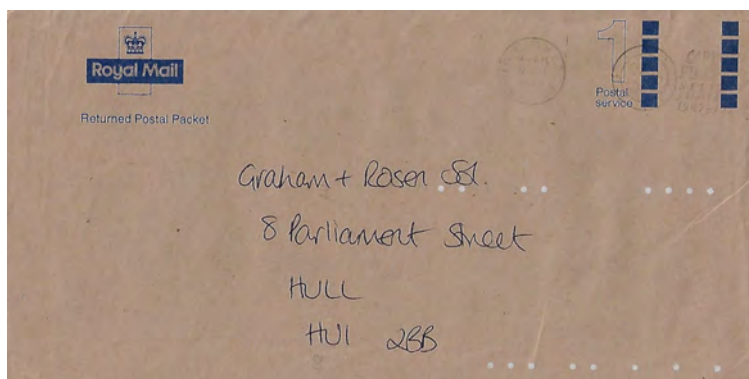 Royal Mail
Returned Postal Packet
1
Postal
service
Graham + Rosen Sol.
8 Parliament Street
HULL
HU1 2BB